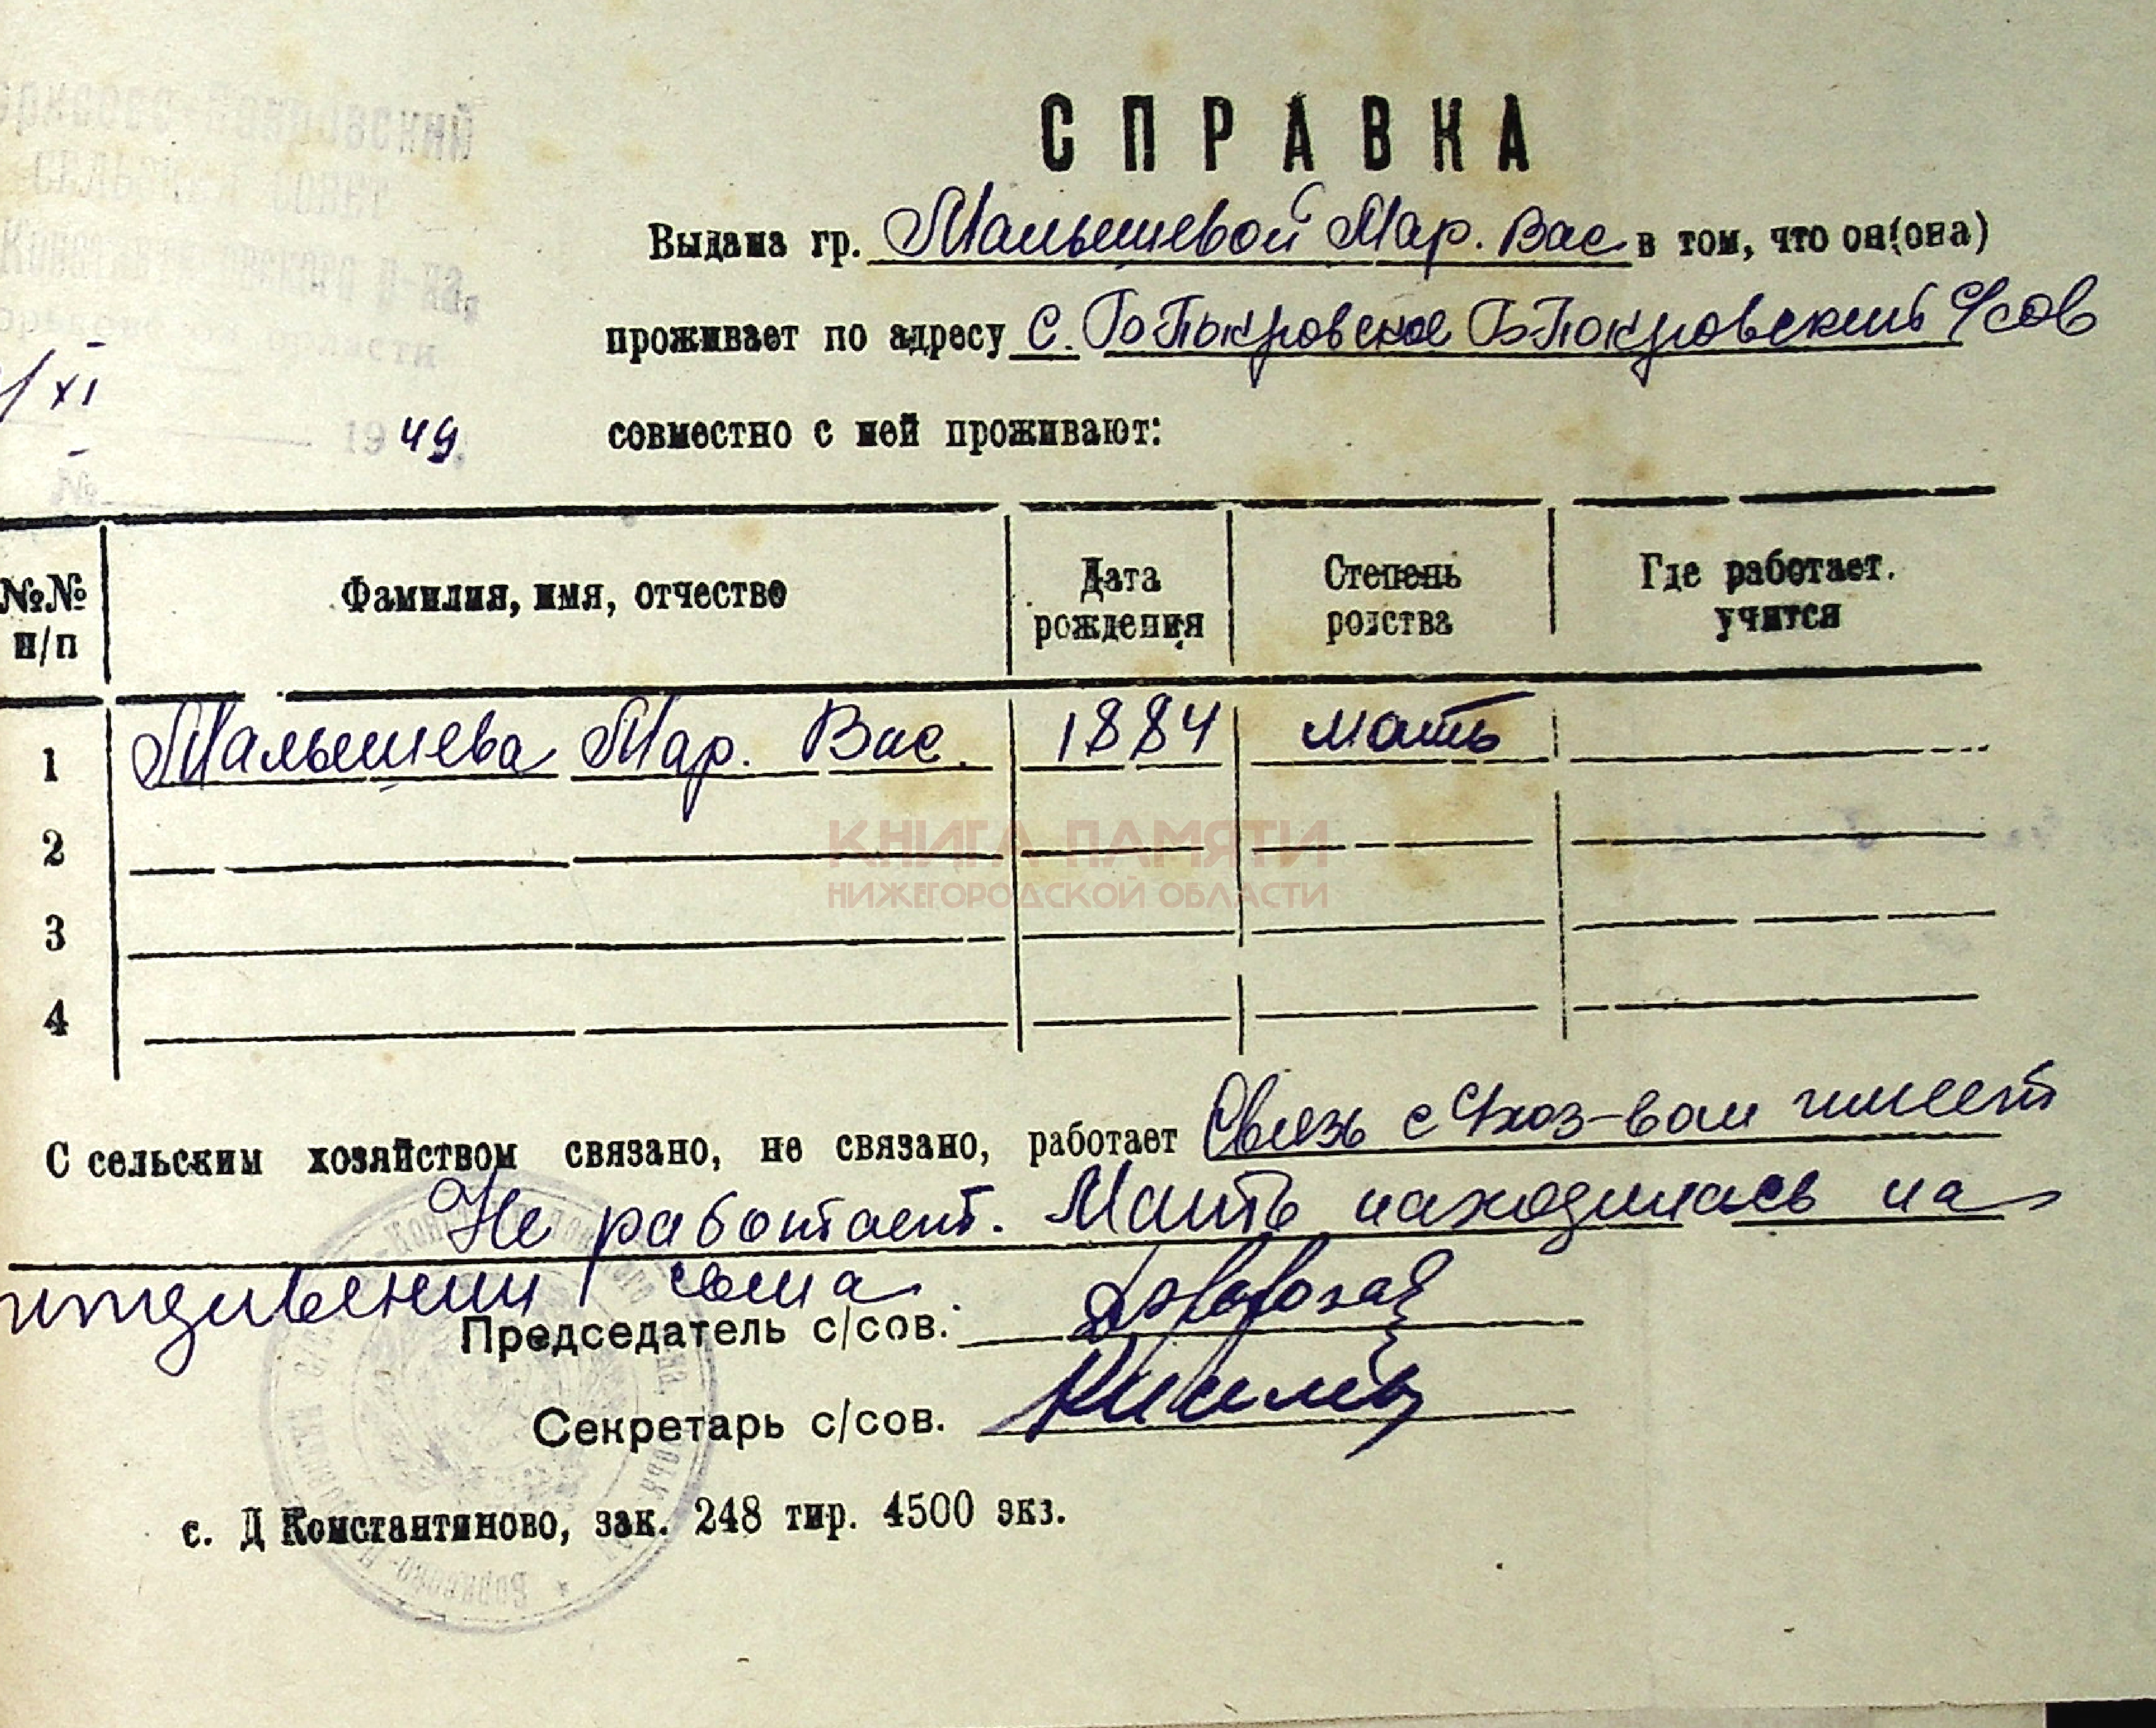 Покровский
сельский совет
Константиновского р-на,
области
XI
1949
№
СПРАВКА
Выдана гр. Малышевой Мар. Вас в том, что он(она)
проживает по адресу с. Б Покровское Б Покровский с/сов
совместно с ней проживают:
№№ п/п Фамилия, имя, отчество Дата рождения Степень родства Где работает. учится
1 Малышева Мар. Вас. 1884 мать
2
3
4
КНИГА ПАМЯТИ
НИЖЕГОРОДСКОЙ ОБЛАСТИ
С сельским хозяйством связано, не связано, работает Связь с с/хоз-вом имеет
Не работает. Мать находилась на
иждивении сына
Председатель с/сов.
Секретарь с/сов.
с. Д Константиново, зак. 248 тир. 4500 экз.